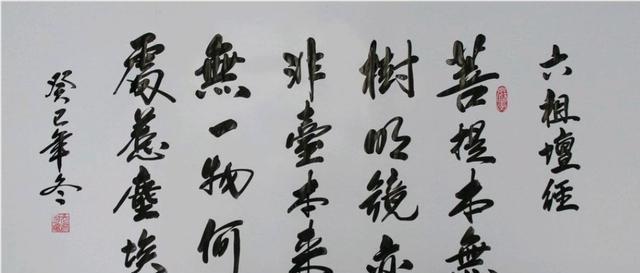 六祖壇經
菩提本無
樹明鏡亦
非臺本來
無一物何
處惹塵埃
癸巳年冬